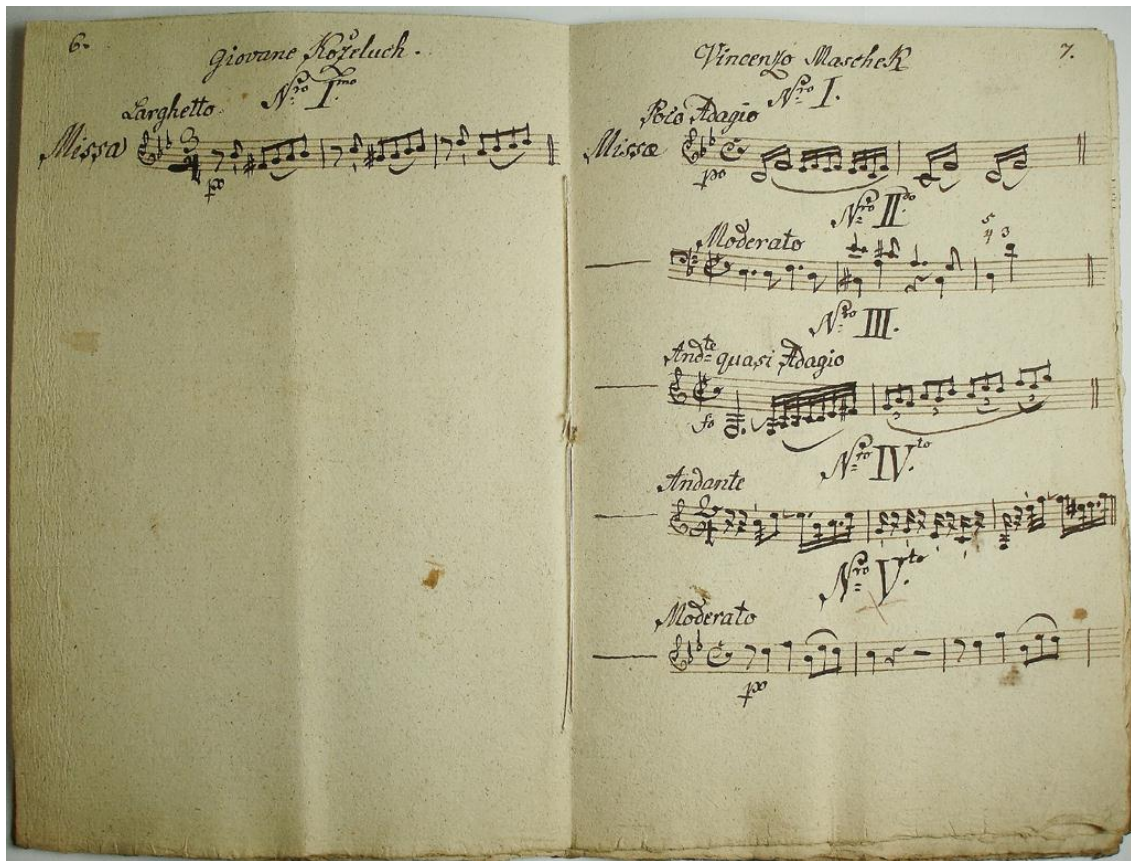 6.
Giovane Koželuch.
Nro Imo.
Larghetto.
Missa
po
7.
Vincenzo Maschek
Nro I.
Poco Adagio
Missæ
po
Nro IIdo.
Moderato
5
4 3
Nro III.
Andte quasi Adagio
fo
3 3 3 3
Nro IV.to
Andante
2
4
Nro V.to
Moderato
po